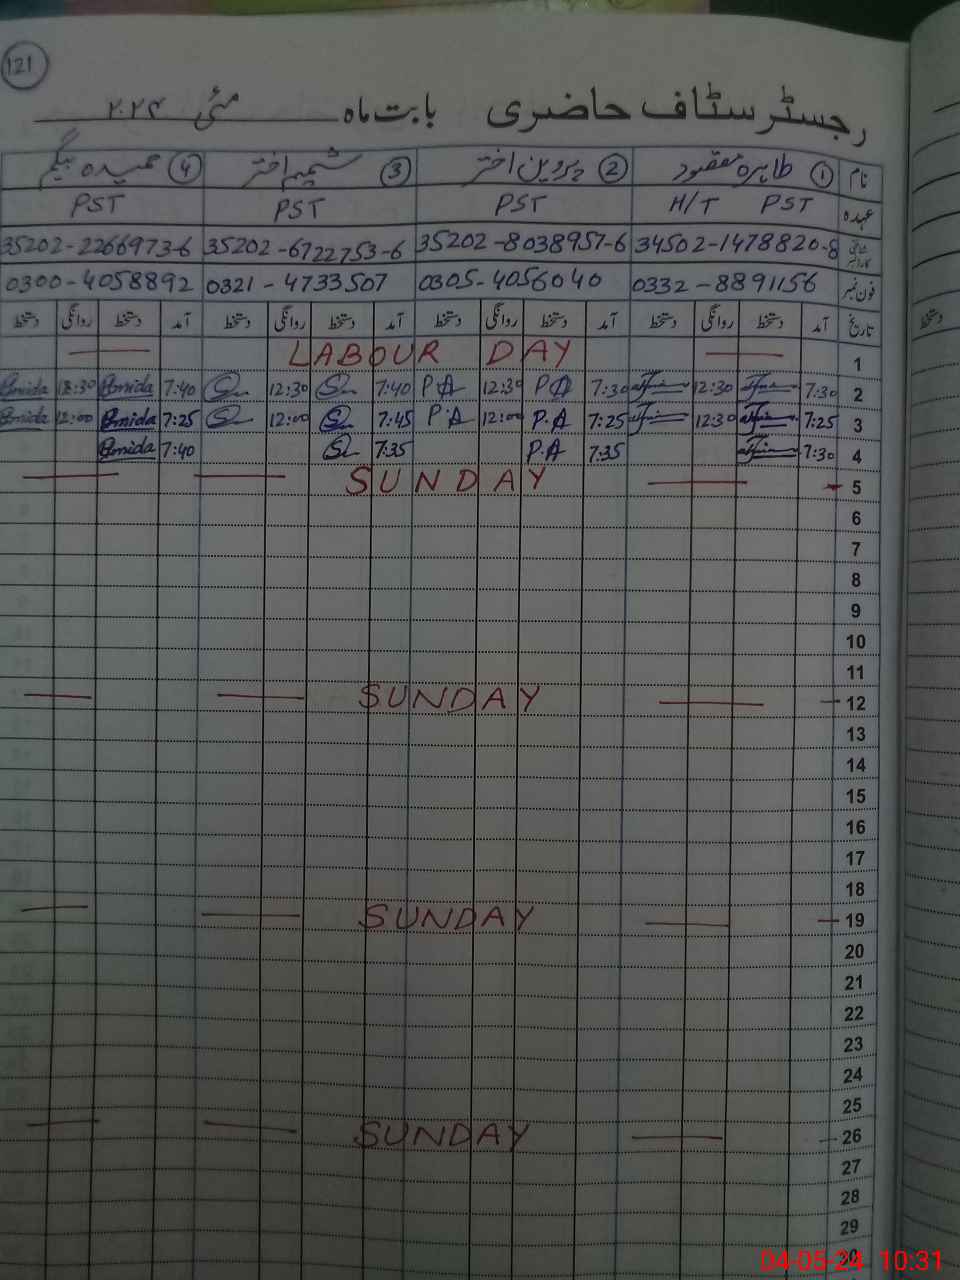 121
رجسٹر سٹاف حاضری بابت ماہ مئی ۲۰۲۴
نام ① طاہرہ مقصود ② پروین اختر ③ شمیم اختر ④ حمیدہ بیگم
عہدہ PST H/T PST PST PST
شناختی کارڈ نمبر 34502-1478820-8 35202-8038957-6 35202-6722753-6 35202-2266973-6
فون نمبر 0332-8891156 0305-4056040 0321-4733507 0300-4058892
تاریخ آمد دستخط روانگی دستخط آمد دستخط روانگی دستخط آمد دستخط روانگی دستخط آمد دستخط روانگی دستخط دستخط
1 LABOUR DAY
2 7:30 12:30 7:30 PA 12:30 PA 7:40 12:30 7:40 Hmida 12:30 Hmida
3 7:25 12:30 7:25 P.A 12:00 P.A 7:45 12:00 7:25 Hmida 12:00 Hmida
4 7:30 7:35 P.A 7:35 7:40 Hmida
5 SUNDAY
6
7
8
9
10
11
12 SUNDAY
13
14
15
16
17
18
19 SUNDAY
20
21
22
23
24
25
26 SUNDAY
27
28
29
30
04-05-24 10:31